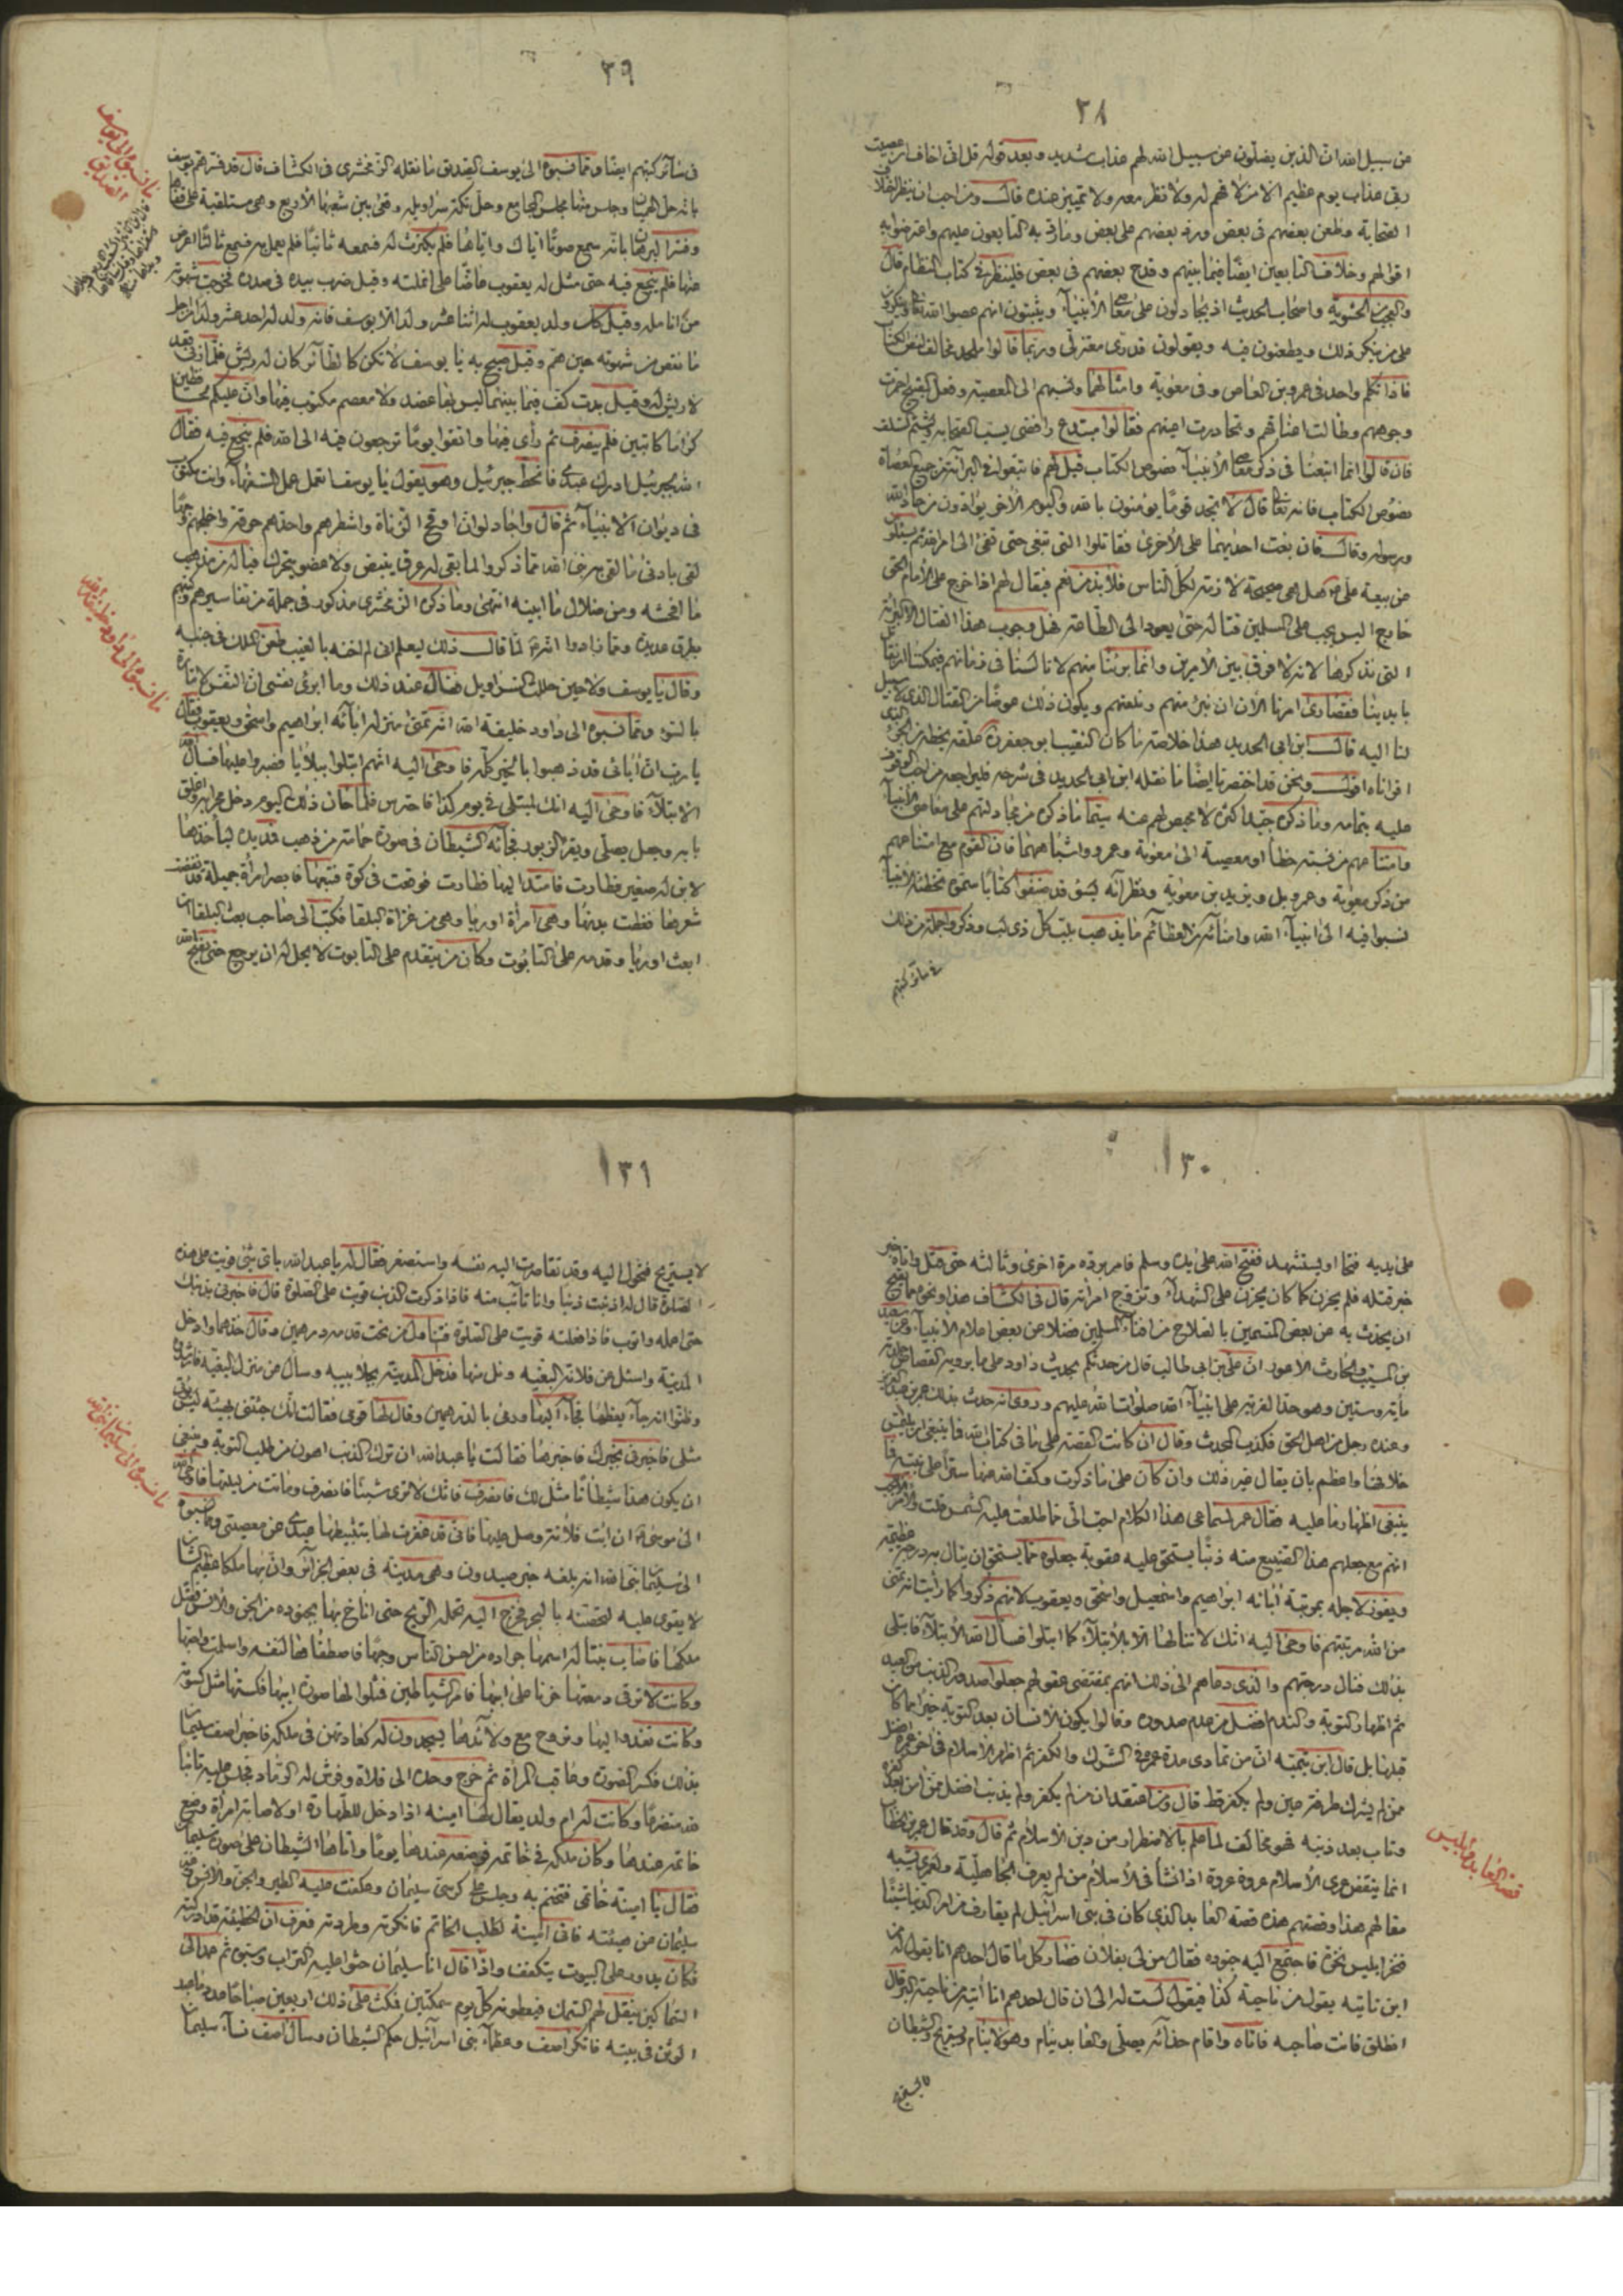 ٣٨
عن سبيل الله ان الذين يضلون عن سبيل الله لهم عذاب شديد وبعد قوله قل انى اخاف ان عصيت
ربى عذاب يوم عظيم الا من لا فهم له ولا نظر معه ولا تمييز عنده قال ومن احب ان ينظر
الصحابة وطعن بعضهم فى بعض ورد بعضهم على بعض وما رد به التابعون عليهم واعترضوا به
اقوالهم وخلاف التابعين ايضا فيما بينهم وقدح بعضهم فى بعض فلينظر فى كتاب النظام قال
والعجب من الحشوية واصحاب الحديث اذ يجادلون على معاصى الأنبياء ويثبتون انهم عصوا الله تعالى وينكرون
على من ينكر ذلك ويطعنون فيه ويقولون قدرى معتزلى وربما قالوا ملحد مخالف لنص الكتاب
فاذا تكلم واحد فى عمرو بن العاص وفى معوية وامثالهما ونسبهم الى المعصية وفعل القبيح احمرت
وجوههم وطالت اعناقهم وتخازرت اعينهم فقالوا مبتدع رافضى يسب الصحابة ويشتم السلف
فان قالوا انما اتبعنا فى ذكر معاصى الأنبياء نصوص الكتاب قيل لهم فاتبعوا فى البراءة من جميع العصاة
نصوص الكتاب فانه تعالى قال لا تجد قوما يؤمنون بالله واليوم الأخر يوادون من حاد الله
ورسوله وقال فان بغت احديهما على الأخرى فقاتلوا التى تبغى حتى تفئ الى امر الله ثم يسئلون
عن بيعة على هل هى صحيحة لازمة لكل الناس فلا بد من نعم فيقال لهم اذا خرج على الامام الحق
خارج اليس يجب على المسلمين قتاله حتى يعود الى الطاعة فهل وجوب هذا القتال الا البراءة
التى نذكرها لانه لا فرق بين الأمرين وانما برئنا منهم لانا لسنا فى زمانهم فيمكننا ان نقاتل
بايدينا فقصارى امرنا الأن ان نبرء منهم ونلعنهم ويكون ذلك عوضا من القتال الذى لا سبيل
لنا اليه قال ابن ابى الحديد هذا خلاصة ما كان النقيب ابو جعفر علقه بخطه من الجزء الذى
اقراناه اقول ونحن قد اختصرنا ايضا ما نقله ابن ابى الحديد فى شرحه فليراجعه من احب الوقوف
عليه بتمامه وما ذكره جيد لكن لا محيص لهم عنه سيما ما ذكره من مجادلتهم على معاصى الأنبياء
وامتناعهم من نسبة خطأ او معصية الى معوية وعمرو واشباههما فان القوم مع امتناعهم
من ذكر معوية وعمرو بل ويزيد بن معوية ونظرائه بسوء قد صنفوا كتابا سموه تخطئة الأنبياء
نسبوا فيه الى انبياء الله وامنائه من العظائم ما يذهب بلب كل ذى لب وذكروا جملة من ذلك
فى سائر كتبهم
٣٩
فى سائر كتبهم ايضا ومما نسبوه الى يوسف الصديق ما نقله الزمخشرى فى الكشاف قال قد فسر هم يوسف
بانه حل الهميان وجلس منها مجلس المجامع وحل تكة سراويله وقعد بين شعبها الأربع وهى مستلقية على قفاها
وفسر البرهان بانه سمع صوتا اياك واياها فلم يكترث له فسمعه ثانيا فلم يعمل به فسمع ثالثا اعرض
عنها فلم ينجع فيه حتى مثل له يعقوب عاضا على انملته وقيل ضرب بيده فى صدره فخرجت شهوته
من انامله وقيل كل ولد يعقوب له اثنا عشر ولدا الا يوسف فانه ولد له احد عشر ولدا من اجل
ما نقص من شهوته حين هم وقيل صيح به يا يوسف لا تكن كالطائر كان له ريش فلما زنى قعد
لا ريش له وقيل بدت كف فيما بينهما ليس بها عضد ولا معصم مكتوب فيها وان عليكم لحافظين
كراما كاتبين فلم ينصرف ثم رأى فيها واتقوا يوما ترجعون فيه الى الله فلم ينجع فيه فقال
الله لجبرئيل ادرك عبدى فانحط جبرئيل وهو يقول يا يوسف اتعمل عمل السفهاء وانت مكتوب
فى ديوان الأنبياء ثم قال
لقى بادنى ما لقى به نبى الله مما ذكروا لما بقى له عرق ينبض ولا عضو يتحرك فياله من مذهب
ما افحشه ومن ضلال ما ابينه انتهى وما ذكره الزمخشرى مذكور فى جملة من تفاسيرهم وكتبهم
بطرق عديدة ومما زادوا انه لما قال ذلك ليعلم انى لم اخنه بالغيب طعن الملك فى جنبه
وقال يا يوسف ولا حين حللت السراويل فقال عند ذلك وما ابرئ نفسى ان النفس لامارة
بالسوء ومما نسبوه الى داود خليفة الله انه تمنى منزلة ابائه ابراهيم واسحق ويعقوب فقال
يا رب ان أبائى قد ذهبوا بالخير كله فاوحى اليه انهم ابتلوا ببلايا فصبروا عليها فسأل
الابتلاء فاوحى اليه انك لمبتلى فى يوم كذا فاحترس فلما حان ذلك اليوم دخل محرابه واغلق
بابه وجعل يصلى ويقرأ الزبور فجائه الشيطان فى صورة حمامة من ذهب فمد يده ليأخذها
لابن له صغير فطارت فامتد اليها فطارت فوقعت فى كوة فتبعها فابصر امرأة جميلة قد نقضت
شعرها فغطت بدنها وهى امرأة اوريا وهى من غزاة البلقا فكتب الى صاحب بعث البلقا ان
ابعث اوريا وقدمه على التابوت وكان من يتقدم على التابوت لا يحل له ان يرجع حتى يفتح الله
ما نسبوه الى يوسف الصديق
ما نسبوه الى داود خليفة الله
١٣٠
على يديه فتحا او يستشهد ففتح الله على يده وسلم فامر برده مرة اخرى وثالثة حتى قتل واتاه خبر
خبر قتله فلم يحزن كما كان يحزن على الشهداء وتزوج امرأته قال فى الكشاف هذا ونحوه مما يقبح
ان يحدث به عن بعض المتسمين بالصلاح من افناء المسلمين فضلا عن بعض اعلام الأنبياء وعن سعيد
بن المسيب والحارث الأعور ان على بن ابى طالب قال من حدثكم بحديث داود على ما يرويه القصاص جلدته
مأية وستين وهو حد الفرية على انبياء الله صلوات الله عليهم وروى انه حدث بذلك عمر بن عبد العزيز
وعنده رجل من اهل الحق فكذب المحدث وقال ان كانت القصة على ما فى كتاب الله فما ينبغى ان يلتمس
خلافها واعظم بان يقال غير ذلك وان كان على ما ذكرت وكف الله عنها سترا على نبيه فما
ينبغى اظهارها عليه فقال عمر لسماعى هذا الكلام احب الى مما طلعت عليه الشمس قلت والأمر الأعجب
انهم مع جعلهم هذا الصنيع منه ذنبا يستحق عليه عقوبة جعلوه مما يستحق ان ينال به درجة عظيمة
ويفوز لاجله بمرتبة أبائه ابراهيم واسمعيل واسحق ويعقوب لانهم ذكروا كما رأيت انه تمنى
من الله مرتبتهم فاوحى اليه انك لا تنالها الا بالأبتلاء كما ابتلوا فسأل الله الأبتلاء فابتلى
بذلك فنال درجتهم والذى دعاهم الى ذلك انهم بمقتضى عقولهم جعلوا صدور الذنب من العبد
ثم اظهار التوبة والندم افضل من عدم صدوره وقالوا يكون الأنسان بعد التوبة خيرا مما كان
قبلها بل قال ابن تيمية ان من تمادى مدة عمره فى الشرك والكفر ثم اظهر الأسلام فى اخر عمره افضل
ممن لم يشرك طرفة عين ولم يكفر قط قال ومن اعتقد ان من لم يكفر ولم يذنب افضل ممن امن بعد كفره
وتاب بعد ذنبه فهو مخالف لما علم بالاضطرار من دين الأسلام ثم قال وقد قال عمر بن الخطاب
انما ينقض عرى الأسلام عروة عروة اذا نشأ فى الأسلام من لم يعرف الجاهلية ولعمرى يشبه
مقالهم هذا وقصتهم هذه قصة العابد الذى كان فى بنى اسرائيل لم يقارف من امر الدنيا شيئا
فنخر ابليس نخرة فاجتمع اليه جنوده فقال من لى بفلان فصار كل ما قال احدهم انا يقول له من
اين تاتيه يقول من ناحية كذا فيقول لست له الى ان قال احدهم انا أتيه من ناحية البر قال
انطلق فانت صاحبه فاتاه واقام حذائه يصلى والعابد ينام وهو لا ينام ويستريح والشيطان
لا يستريح
قصة العابد وابليس
١٣١
لا يستريح فتحول اليه وقد تقاصرت اليه نفسه واستصغر فقال له يا عبد الله باى شئ قويت على هذه
الصلوة قال له اذنبت ذنبا وانا تائب منه فاذا ذكرت الذنب قويت على الصلوة قال فاخبرنى بذنبك
حتى اعمله واتوب فاذا فعلته قويت على الصلوة فتناول من تحت قدمه درهمين وقال خذهما وادخل
المدينة واسئل عن فلانة البغية ونل منها فدخل المدينة بجلابيبه وسأل عن منزل البغية فارشدوه
وظنوا انه جاء يعظها فجاء اليها ورمى بالدرهمين وقال لها قومى فقالت انك جئتنى بهيئة ليس يؤتى
مثلى فاخبرنى بخبرك فاخبرها فقالت يا عبد الله ان ترك الذنب اهون من طلب التوبة وينبغى
ان يكون هذا شيطانا مثل لك فانصرف فانك لا ترى شيئا فانصرف وماتت من ليلتها فاوحى الله
الى موسى ان ائت فلانة وصل عليها فانى قد غفرت لها بتثبيطها عبدى عن معصيتى ومما نسبوه
الى سليمان نبى الله انه بلغه خبر صيدون وهى مدينة فى بعض الجزائر وان بها ملكا عظيم الشان
لا يقوى عليه لتحصنه بالبحر فخرج اليه تحمله الريح حتى اناخ بها بجنوده من الجن والأنس فقتل
ملكها فاصاب بنتا له اسمها جراده من احسن الناس وجها فاصطفاها لنفسه واسلمت واحبها
وكانت لا ترقى دمعتها حزنا على ابيها فامر الشياطين فمثلوا لها صورة ابيها فكستها مثل كسوته
وكانت تغدو اليها وتروح مع ولائدها يسجدون له كعادتهن فى ملكه فاخبر اصف سليمان
بذلك فكسر الصورة وعاقب المرأة ثم خرج وحده الى فلاة وفرش له الرماد فجلس عليه تائبا
لله متضرعا وكانت له ام ولد يقال لها امينة اذا دخل للطهارة او لاصابة امرأة وضع
خاتمه عندها وكان ملكه فى خاتمه فوضعه عندها يوما واتاها الشيطان على صورة سليمان
فقال يا امينة خاتمى فتختم به وجلس على كرسى سليمان وعكفت عليه الطير والجن والأنس وغير
سليمان عن هيئته فاتى امينة لطلب الخاتم فانكرته وطردته فعرف ان الخطيئة قد ادركته
فكان يدور على البيوت يتكفف واذا قال انا سليمان حثوا عليه التراب وسبوه ثم عمد الى
السماكين ينقل لهم السمك فيعطونه كل يوم سمكتين فمكث على ذلك اربعين صباحا عدد ما عبد
الوثن فى بيته فانكر اصف وعظماء بنى اسرائيل حكم الشيطان وسأل اصف نساء سليمان
ما نسبوه الى سليمان نبى الله